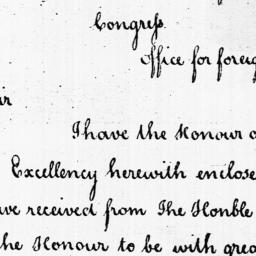 Congress.
Office for foreig
ir
I have the Honour o
Excellency herewith enclose
ve received from The Honble
the Honour to be with grea